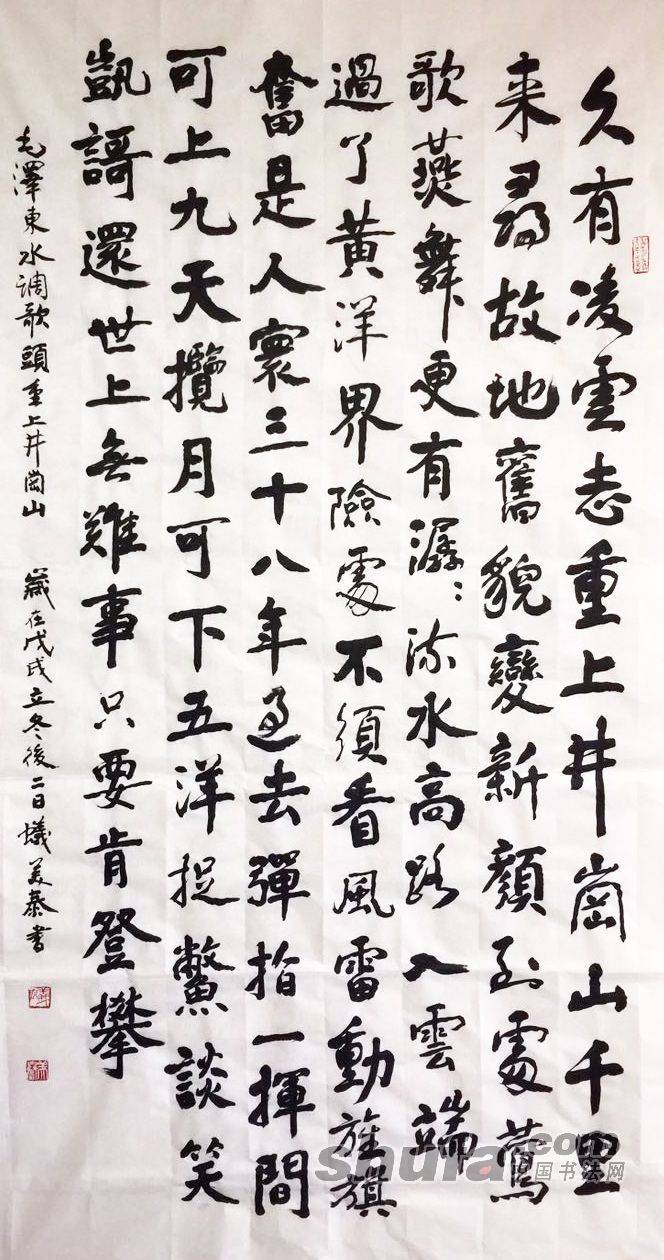 久有凌雲志重上井崗山千里
来尋故地舊貌變新顔到處鶯
歌燕舞更有潺〻流水高路入雲端
過了黄洋界險處不須看風雷動旌旗
奮是人寰三十八年過去彈指一揮間
可上九天攬月可下五洋捉鱉談笑
凱謌還世上無難事只要肯登攀
毛澤東水調歌頭重上井崗山 歲在戊戌立冬後二日蟻美泰書
shufa.com
中国书法网